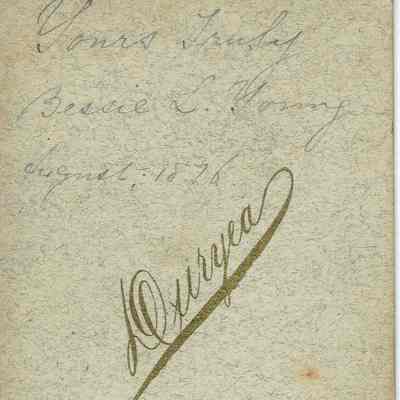 Yours Truly
Bessie L. Young
August, 1876
Duryea